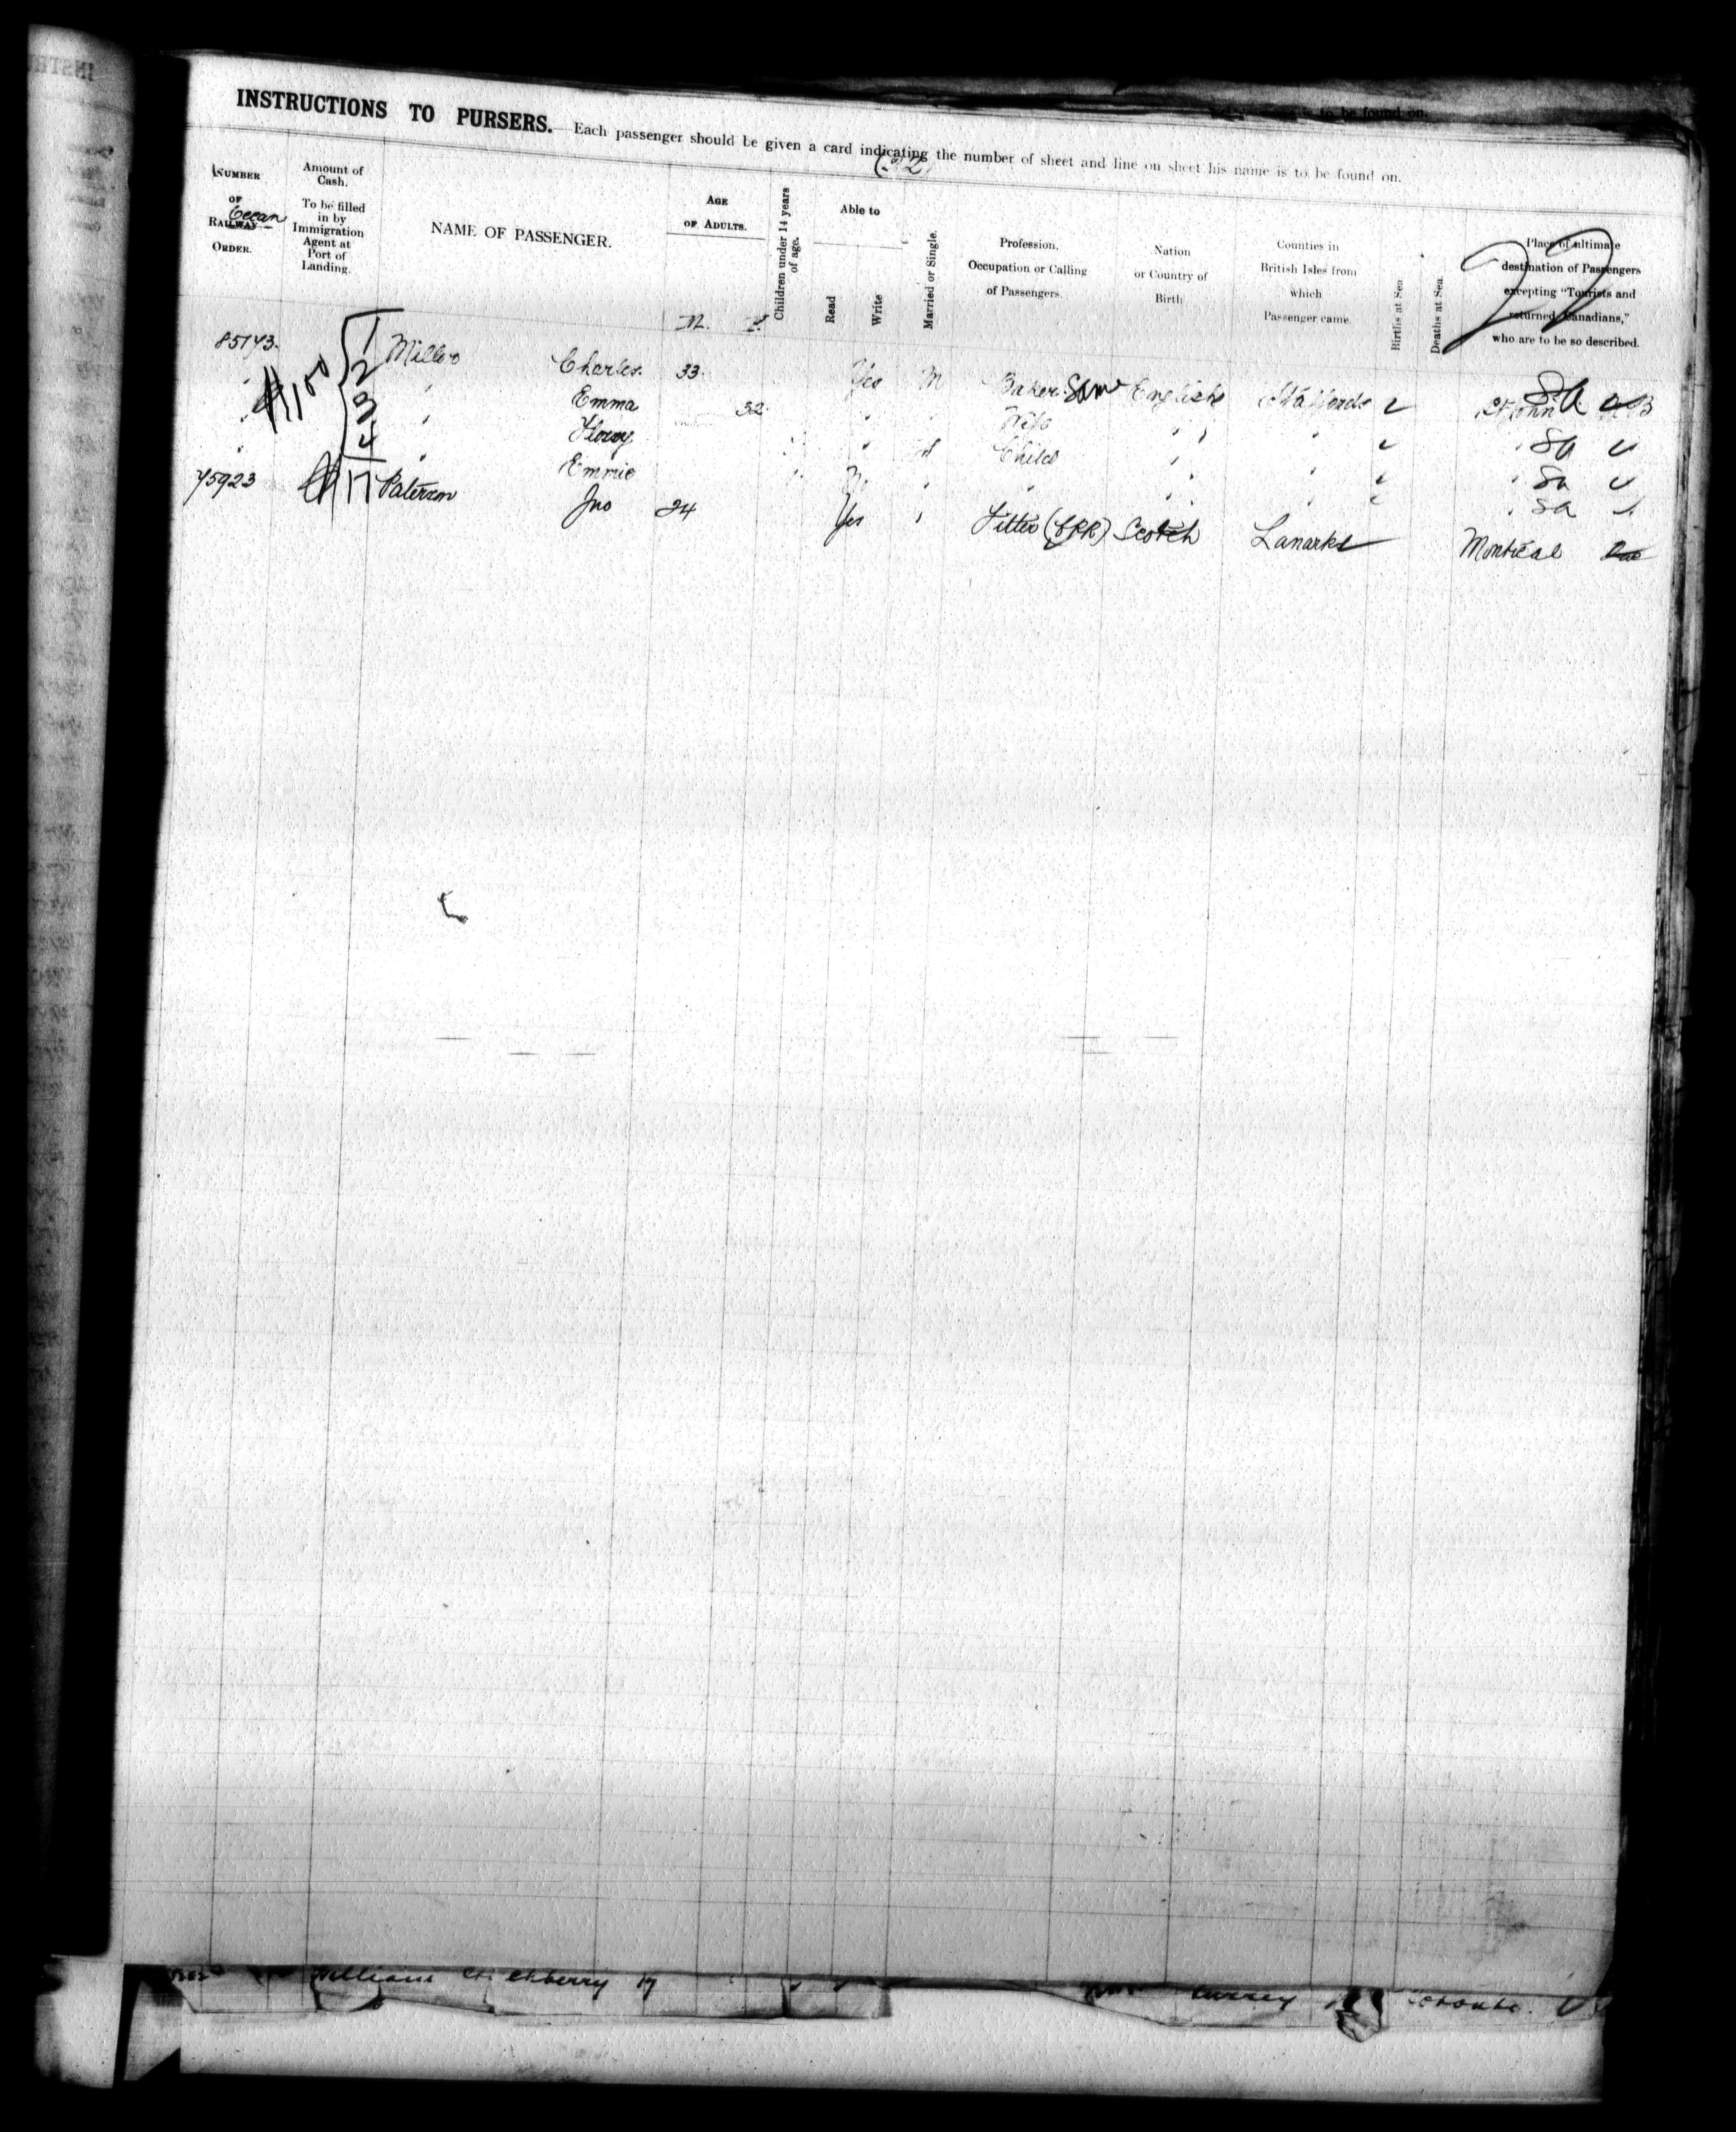 INSTRUCTIONS TO PURSERS. Each passenger should be given a card indicating the number of sheet and line on sheet his name is to be found on.
to be found on.
(22)
22
NUMBER OF RAILWAY ORDER.
Ocean
Amount of Cash. To be filled in by Immigration Agent at Port of Landing.
NAME OF PASSENGER.
AGE OF ADULTS.
M. F.
Children under 14 years of age.
Able to
Read
Write
Married or Single.
Profession, Occupation or Calling of Passengers.
Nation or Country of Birth
Counties in British Isles from which Passenger came.
Births at Sea
Deaths at Sea.
Place of ultimate destination of Passengers excepting "Tourists and returned Canadians," who are to be so described.
85143. $100 1 Charles. 33. Yes M Baker English Staffords St John SA
" 2 " Emma 32 " " Wife " " " " SA
" 3 " " Child " " " SA
" 4 " " " " " " SA
75923 $17 Paterson Jno 24 Yes " Fitter Scotch Lanarks Montreal
William 19